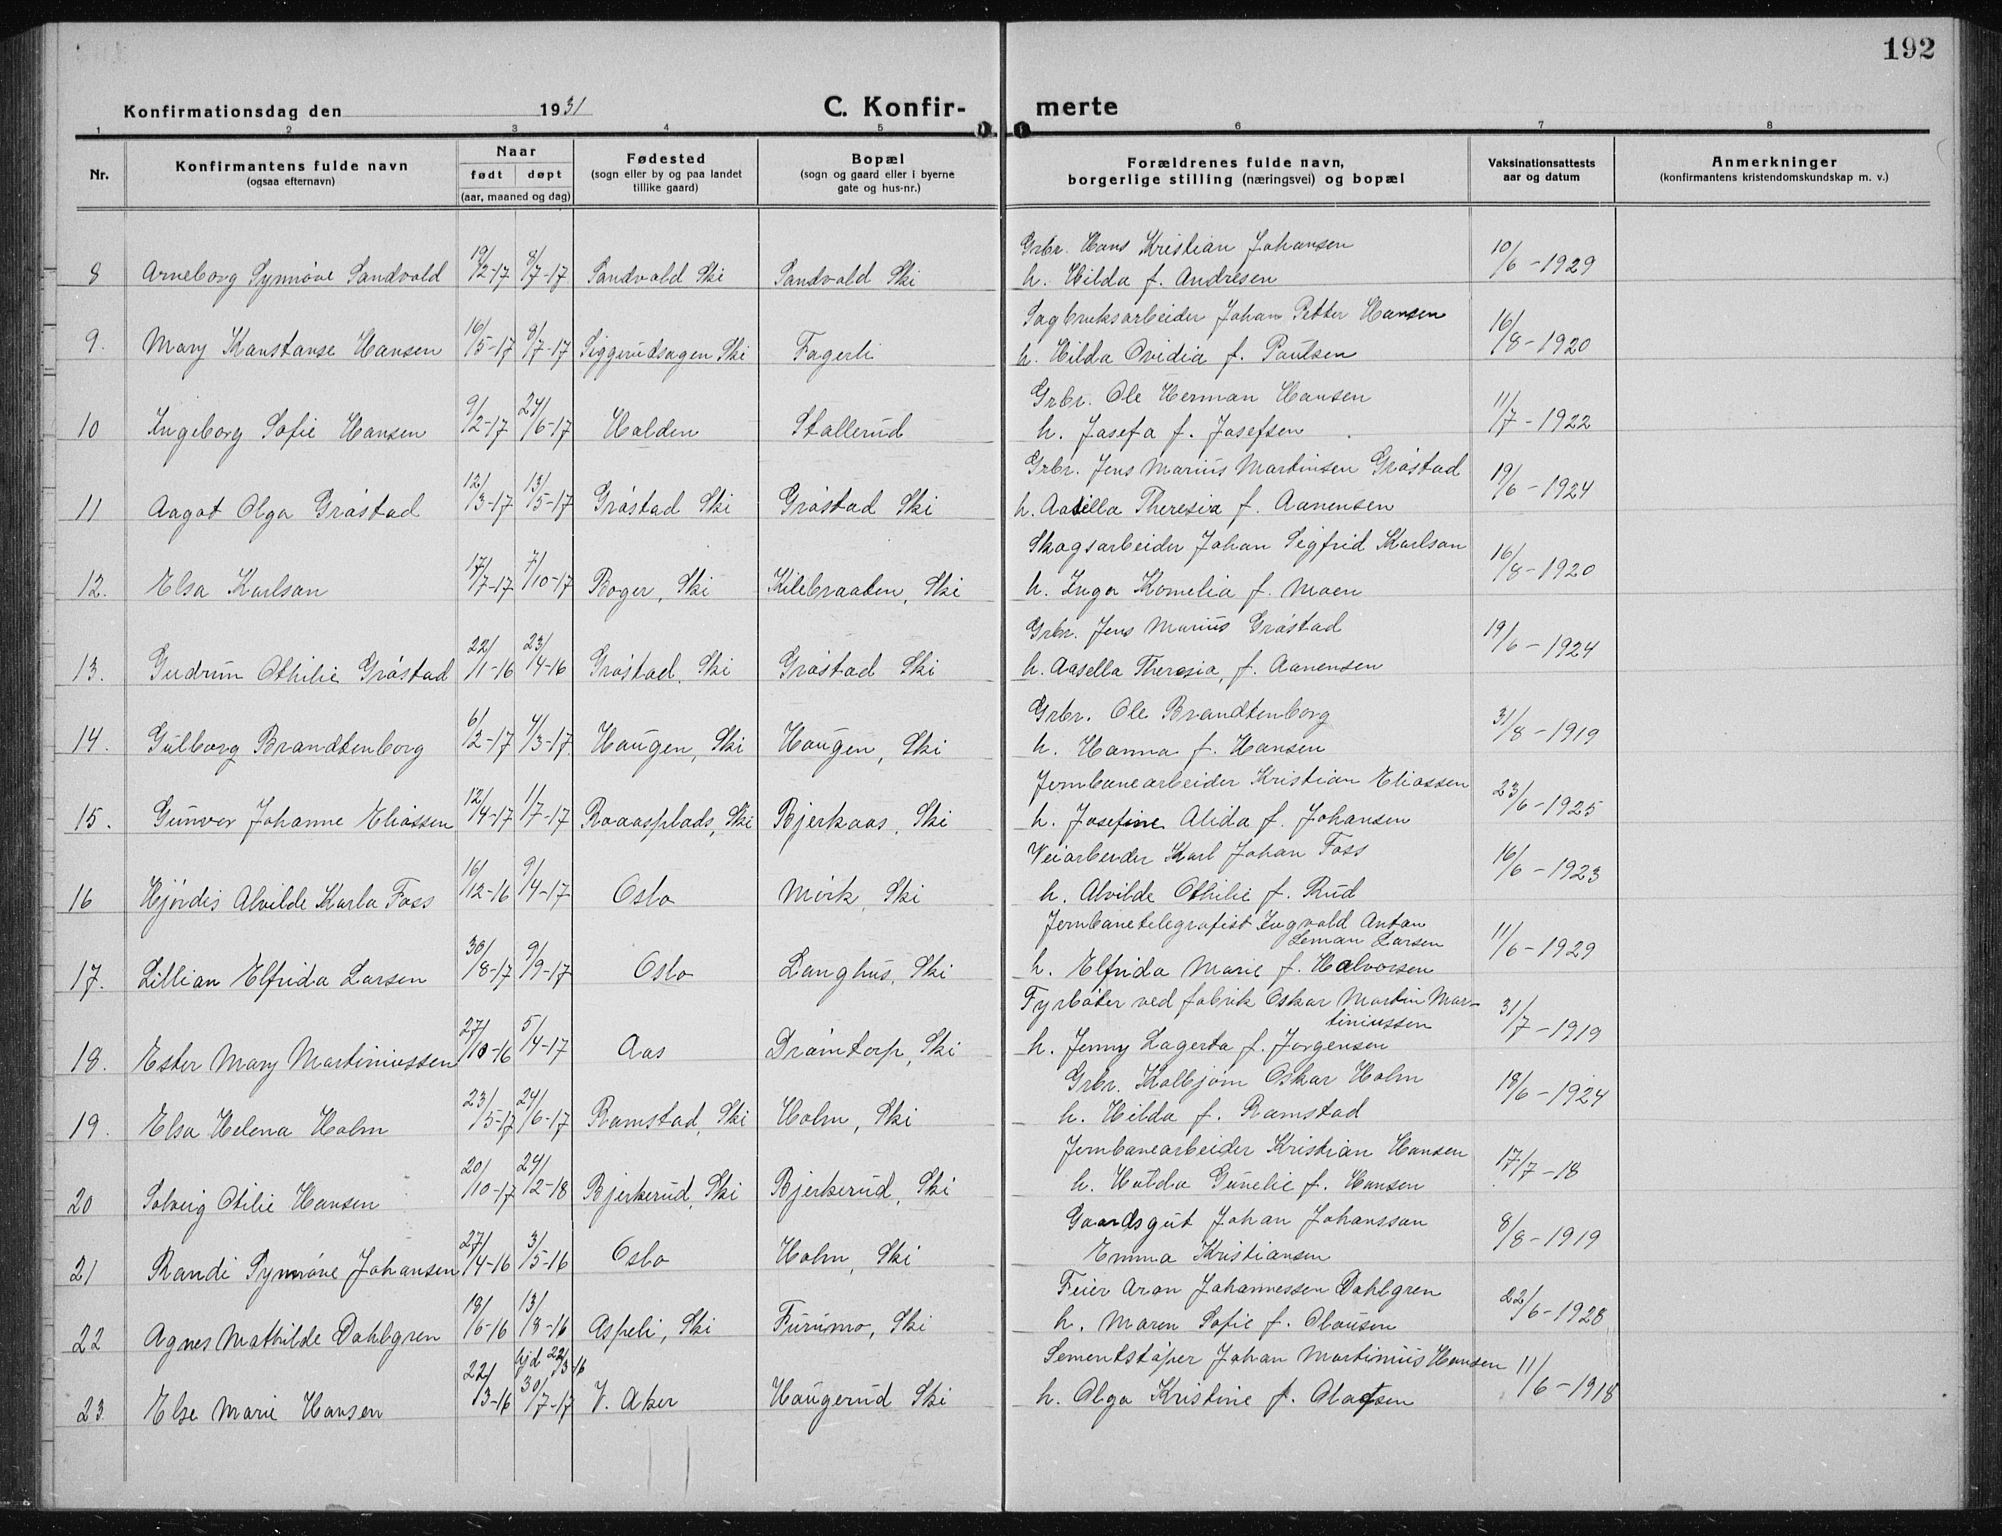 192
Konfirmationsdag den 1931 C. Konfir- merte
1 2 3 4 5 6 7 8
Nr. Konfirmantens fulde navn (ogsaa efternavn) Naar født døpt (aar, maaned og dag) Fødested (sogn eller by og paa landet tillike gaard) Bopæl (sogn og gaard eller i byerne gate og hus-nr.) Forældrenes fulde navn, borgerlige stilling (næringsvei) og bopæl Vaksinationsattests aar og datum Anmerkninger (konfirmantens kristendomskundskap m. v.)
Grbr. Hans Kristian Johansen
8 Arneborg Synnøve Sandvold 19/2-17 8/7-17 Sandvold Ski Sandvold Ski h. Hilda f. Andresen 10/6-1929
Sagbruksarbeider Johan Petter Hansen
9. Mary Konstanse Hansen 16/5-17 8/7-17 Siggerudsagen Ski Fagerli h. Hilda Ovidia f. Paulsen 16/8-1920
Grbr. Ole Herman Hansen
10 Ingeborg Sofie Hansen 9/2-17 24/6-17 Halden Stallerud h. Josefa f. Josefsen 11/7-1922
Grbr. Jens Marius Martinsen Gråstad
11 Aagot Olga Gråstad 12/3-17 13/5-17 Gråstad Ski Gråstad Ski h. Aasella Theresia f. Aanensen 19/6-1924
Skogsarbeider Johan Sigfrid Karlson
12. Elsa Karlson 17/7-17 7/10-17 Roger, Ski Kilebraaten, Ski h. Inga Kornelia f. Moen 16/8-1920
Grbr. Jens Marius Gråstad
13. Gudrun Othilie Gråstad 22/1-16 23/4-16 Gråstad, Ski Gråstad Ski h. Aasella Theresia, f. Aanensen 19/6-1924
Grbr. Ole Brandtenborg
14. Gulborg Brandtenborg 6/2-17 4/3-17 Haugen, Ski Haugen, Ski h. Hanna f. Hansen 31/8-1919
Jernbanearbeider Kristian Eliassen
15. Gunvor Johanne Eliassen 12/4-17 1/7-17 Roaasplads, Ski Bjerkaas, Ski h. Josefine Alida f. Johansen 23/6-1925
Veiarbeider Karl Johan Foss
16 Hjørdis Alvilde Karla Foss 16/12-16 9/4-17 Oslo Mörk, Ski h. Alvilde Othilie f. Rud 16/6-1923
Jernbanetelegrafist Ingvald Anton
Leman Larsen
17. Lillian Elfrida Larsen 30/8-17 9/9-17 Oslo Langhus, Ski h. Elfrida Marie f. Halvorsen 11/6-1929
Fyrböter ved fabrik Oskar Martin Mar-
tiniussen
18. Ester Mary Martiniussen 27/10-16 5/4-17 Aas Drömtorp, Ski h. Jenny Lagerta f. Jørgensen 31/7-1919
Grbr. Kolbjørn Oskar Holm
19. Elsa Helena Holm 23/5-17 24/6-17 Ramstad, Ski Holm, Ski h. Hilda f. Ramstad 18/6-1924
Jernbanearbeider Kristian Hansen
20 Solveig Otilie Hansen 20/10-17 24/2-18 Bjerkerud, Ski Bjerkerud, Ski h. Hulda Gunelie f. Hansen 17/7-18
Gaardsgut Johan Johansson
21 Randi Synnøve Johansen 27/4-16 3/5-16 Oslo Holm, Ski Emma Kristiansen 8/8-1919
Feier Aron Johannessen Dahlgren
22 Agnes Mathilde Dahlgren 18/6-16 13/8-16 Aspeli, Ski Furumo, Ski h. Maren Sofie f. Olausen 22/6-1928
Sementstöper Johan Martinius Hansen
23 Else Marie Hansen 22/3-16 hjd 22/3-16 30/7-17 V. Aker Haugerud Ski h. Olga Kristine f. Olafsen 11/6-1918